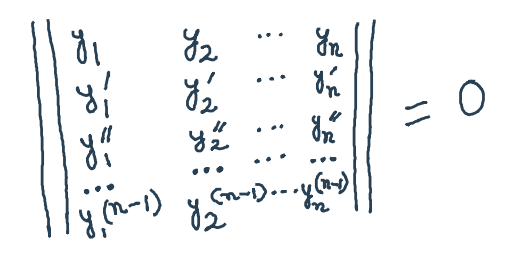 y₁ y₂ ⋯ yₙ
y₁′ y₂′ ⋯ yₙ′
y₁″ y₂″ ⋯ yₙ″ = 0
⋯ ⋯ ⋯ ⋯
y₁⁽ⁿ⁻¹⁾ y₂⁽ⁿ⁻¹⁾ ⋯ yₙ⁽ⁿ⁻¹⁾